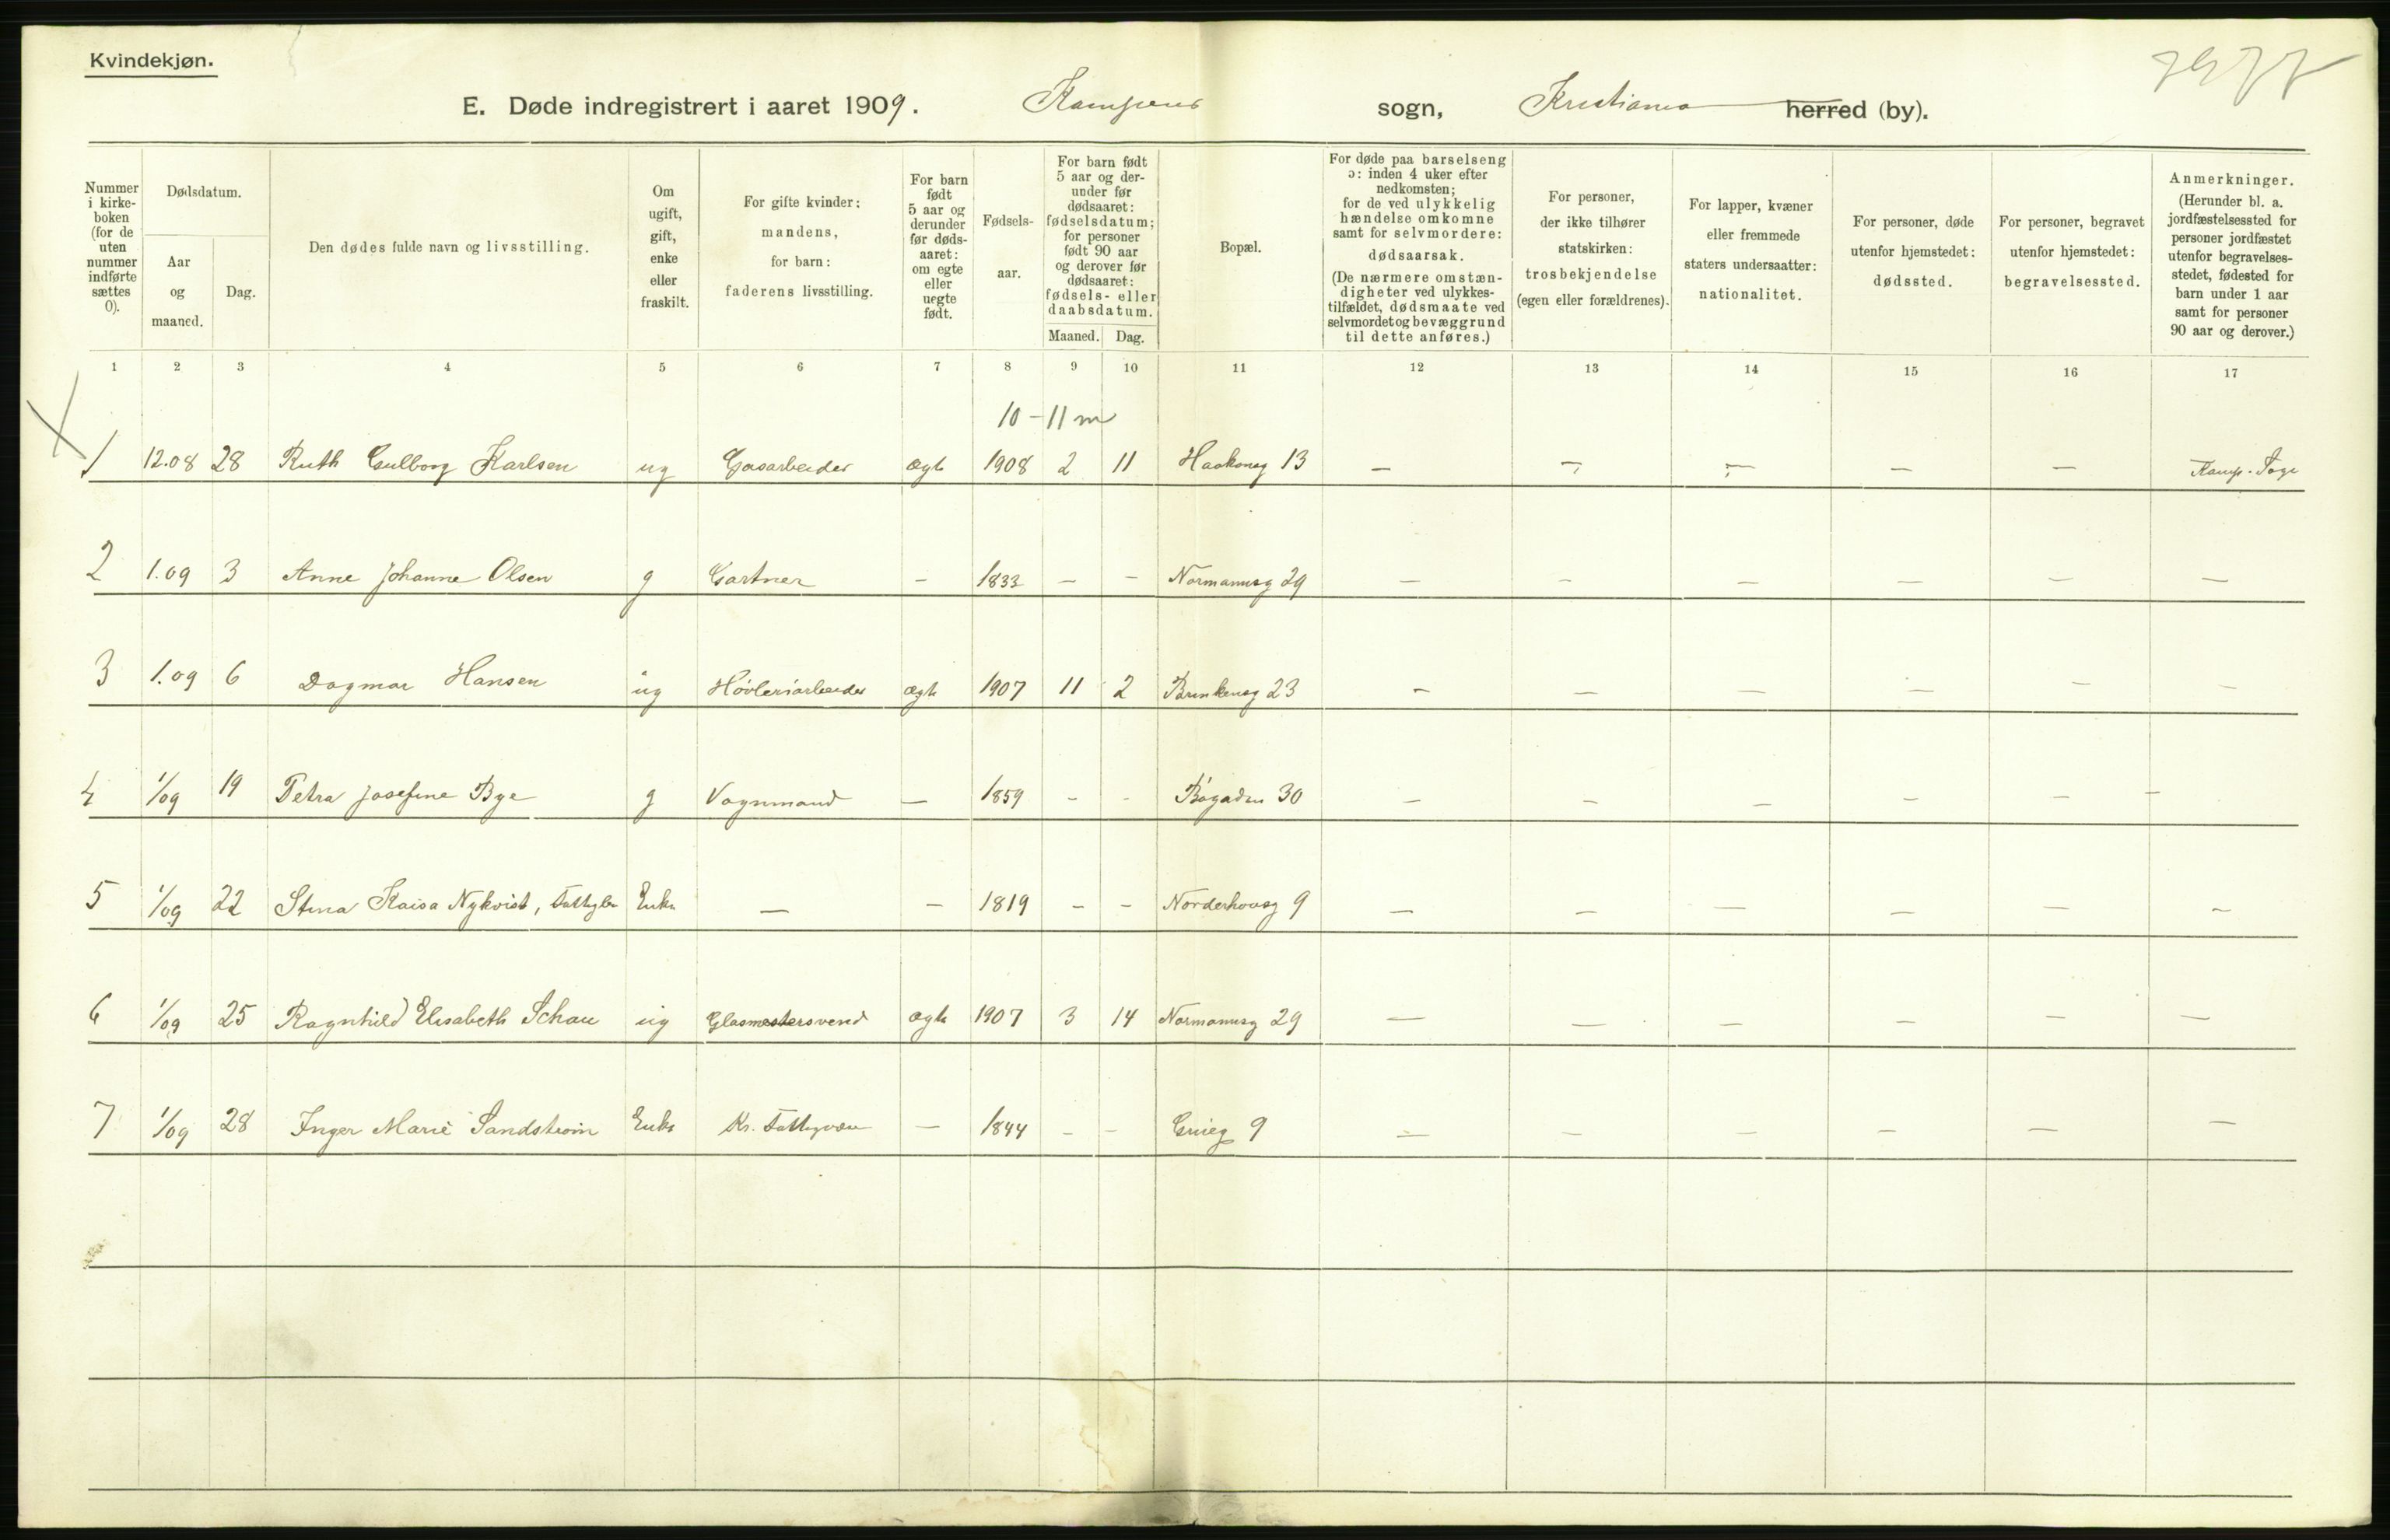 Kvindekjøn.
E. Døde indregistrert i aaret 1909. Kampens sogn, Kristiania herred (by).
Nummer i kirke-boken (for de uten nummer indførte sættes 0).
Dødsdatum.
Aar og maaned.
Dag.
Den dødes fulde navn og livsstilling.
Om ugift, gift, enke eller fraskilt.
For gifte kvinder: mandens, for barn: faderens livsstilling.
For barn født 5 aar og derunder før døds-aaret: om egte eller uegte født.
Fødsels-aar.
For barn født 5 aar og der-under før dødsaaret: fødselsdatum; for personer født 90 aar og derover før dødsaaret: fødsels- eller daabsdatum.
Maaned. Dag.
Bopæl.
For døde paa barselseng ɔ: inden 4 uker efter nedkomsten; for de ved ulykkelig hændelse omkomne samt for selvmordere: dødsaarsak. (De nærmere omstæn-digheter ved ulykkes-tilfældet, dødsmaate ved selvmordet og bevæggrund til dette anføres.)
For personer, der ikke tilhører statskirken: trosbekjendelse (egen eller forældrenes).
For lapper, kvæner eller fremmede staters undersaatter: nationalitet.
For personer, døde utenfor hjemstedet: dødssted.
For personer, begravet utenfor hjemstedet: begravelsessted.
Anmerkninger. (Herunder bl. a. jordfæstelsessted for personer jordfæstet utenfor begravelses-stedet, fødested for barn under 1 aar samt for personer 90 aar og derover.)
1 2 3 4 5 6 7 8 9 10 11 12 13 14 15 16 17
10-11 m
1 12.08 28 Ruth Gulborg Karlsen ug Gasarbeider ægte 1908 2 11 Haakonsg 13 — — — — — Kamp.
2 1.09 3 Anne Johanne Olsen g Gartner — 1833 — — Normannsg 29 — — — — — —
3 1.09 6 Dagmar Hansen ug Høvleriarbeider ægte 1907 11 2 Brinkensg 23 — — — — — —
4 1/09 19 Petra Josefine Bye g Vognmand — 1859 - - Bøgaden 30 — — — — — —
5 1/09 22 Stina Kaisa Nykvist, Enke — — 1819 - - Norderhovsg 9 — — — — — —
6 1/09 25 Ragnhild Elisabeth Schau ug Glasmestersvend ægte 1907 3 14 Normannsg 29 — — — — — —
7 1/09 28 Inger Marie Sandstrøm Enke — 1844 - - Grieg 9 — — — — — —